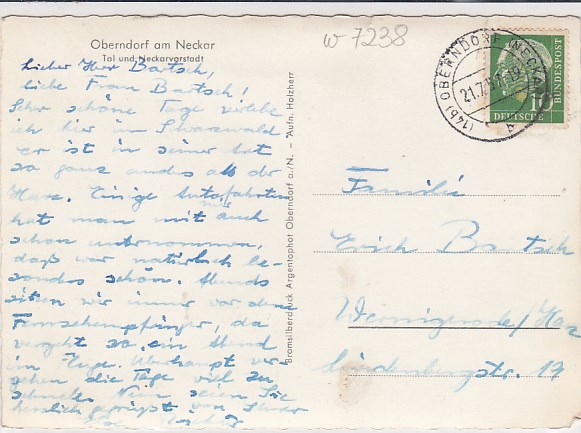 Oberndorf am Neckar
Tal und Neckarvorstadt
Lieber Herr Bartsch,
liebe Frau Bartsch!
Sehr schöne Tage verlebe
ich hier im Schwarzwald
er ist in seiner Art
so ganz anders als der
Harz. Einige Autofahrten
hat man mit mir auch
schon unternommen,
daß war natürlich be-
sonders schön. Abends
sitzen wir immer vor dem
Fernsehempfänger, da
vergeht so ein Abend
im Fluge. Überhaupt ver-
gehen die Tage viel zu
schnell. Nun seien Sie
herzlich gegrüßt von Ihrer
w 7238
(14b) OBERNDORF (NECKAR)
21.7.57
DEUTSCHE BUNDESPOST
10
Familie
Erich Bartsch
Wernigerode/Harz
Lindenbergstr. 19
Bromsilberdruck Argentaphot Oberndorf a./N. - Aufn. Holzherr